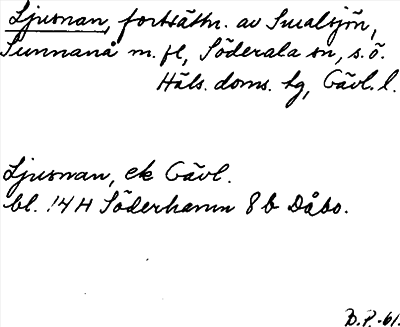 Ljusnan, fortsättn. av Smalsjön,
Sunnanå m. fl, Söderala sn, s.ö.
Häls. doms. tg, Gävl. l.
Ljusnan, ek Gävl.
bl. 14 H Söderhamn 8 b Dåbo.
B.P.-61.